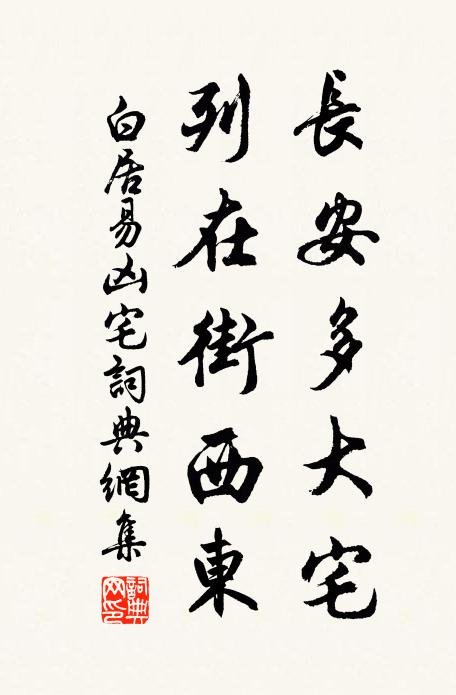 長安多大宅
列在街西東
白居易凶宅詞典網集
詞典
网印